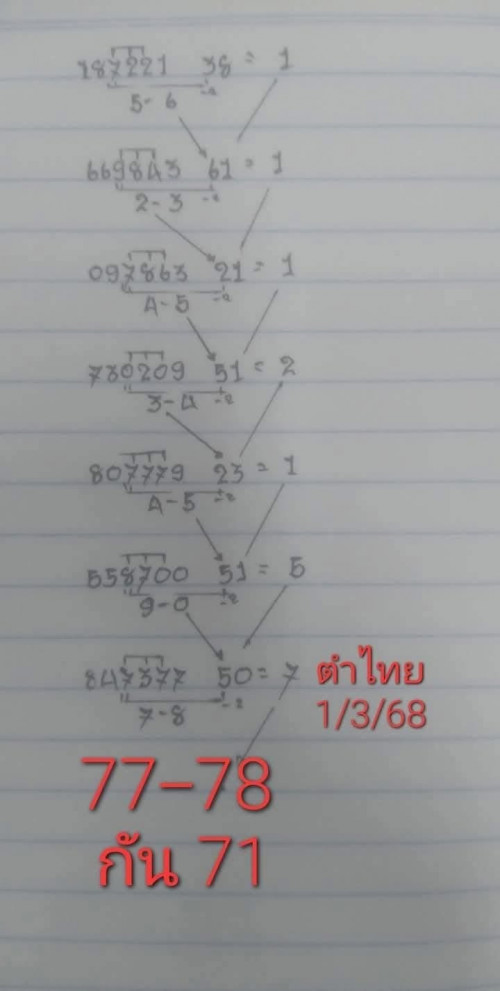 287221 38 = 1
5-6 -2
669843 61 = 1
2-3 -2
097863 21 = 1
4-5 -2
730209 51 = 2
3-4 -2
807779 23 = 1
4-5 -2
558700 51 = 5
9-0 -2
847377 50 = 7 ตำไทย
7-8 -2 1/3/68
77-78
กัน 71